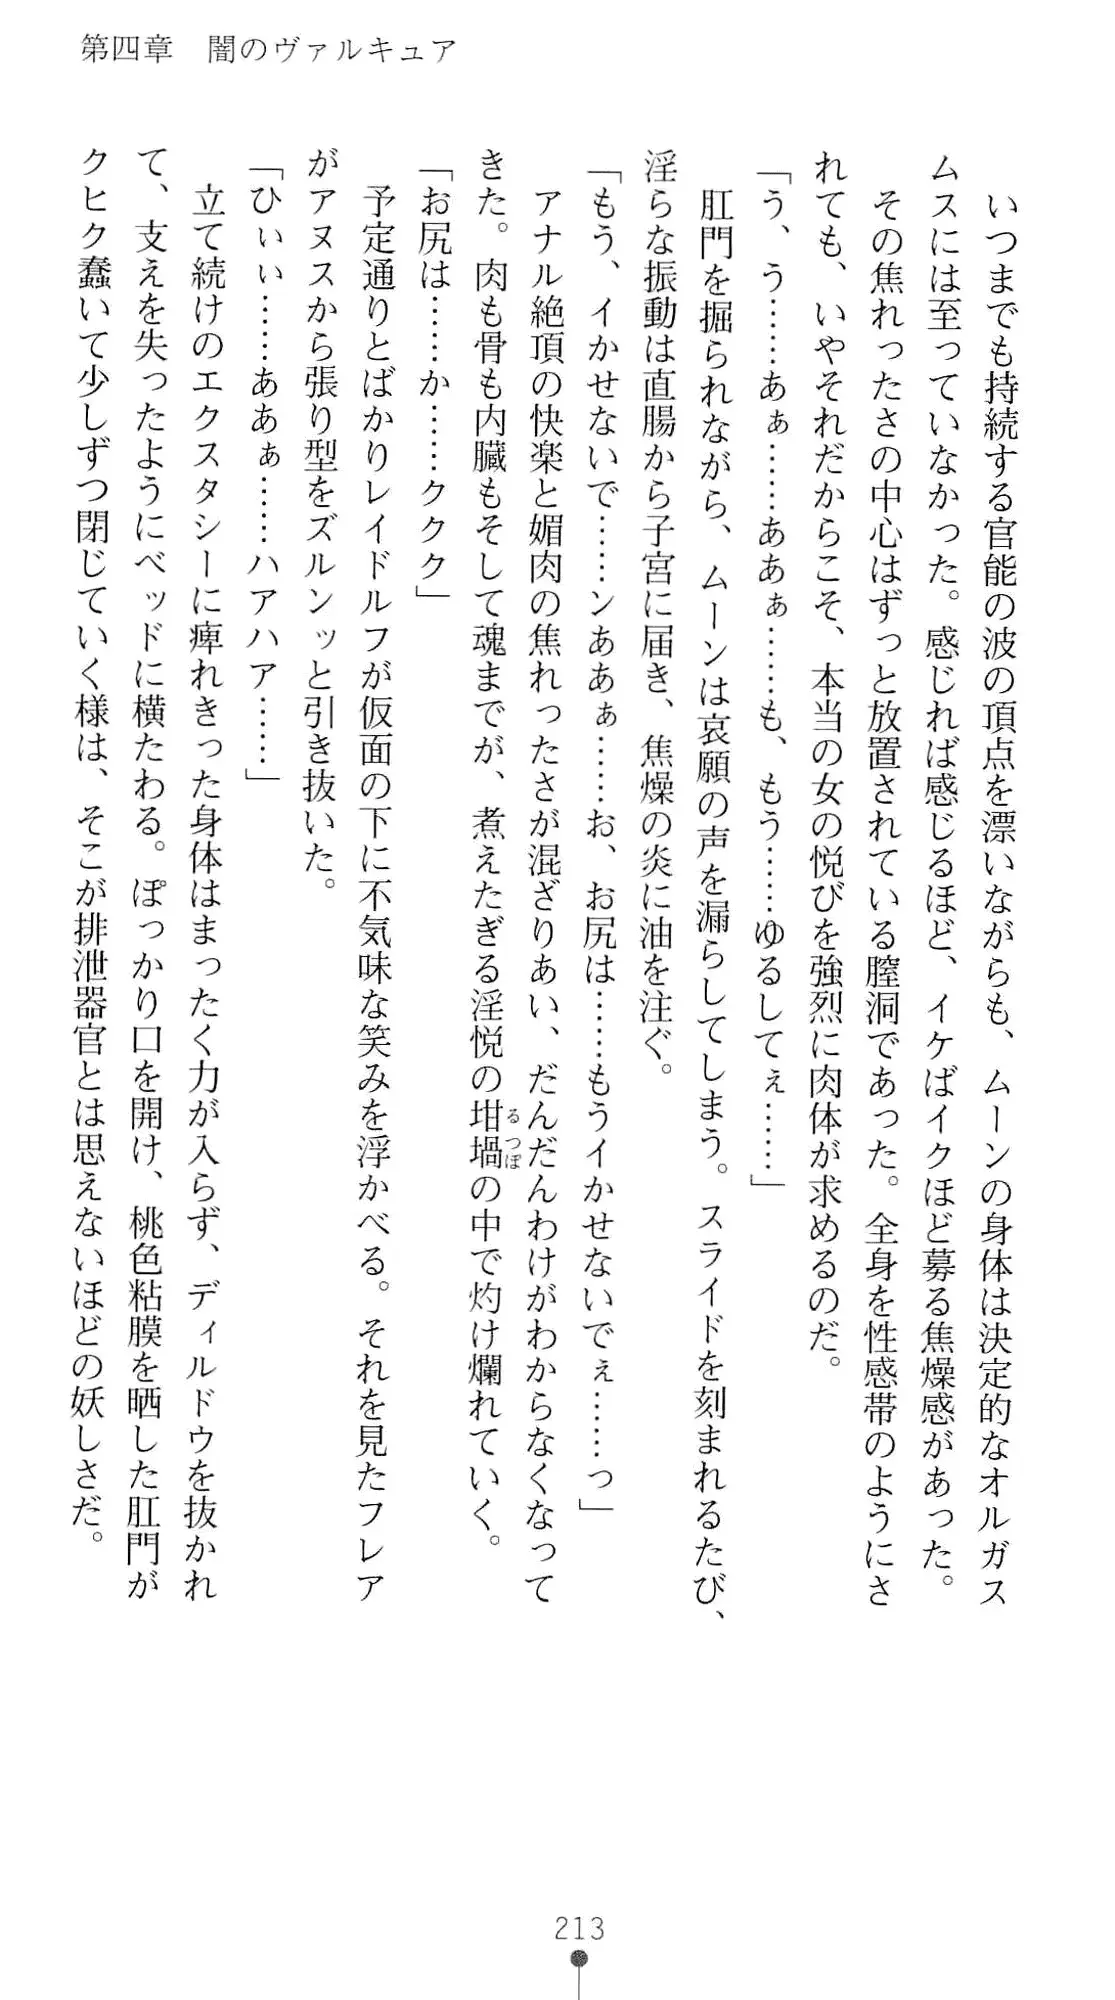 第四章　闇のヴァルキュア
　いつまでも持続する官能の波の頂点を漂いながらも、ムーンの身体は決定的なオルガス
ムスには至っていなかった。感じれば感じるほど、イケばイクほど募る焦燥感があった。
　その焦れったさの中心はずっと放置されている膣洞であった。全身を性感帯のようにさ
れても、いやそれだからこそ、本当の女の悦びを強烈に肉体が求めるのだ。
「う、う……あぁ……ああぁ……も、もう……ゆるしてぇ……」
　肛門を掘られながら、ムーンは哀願の声を漏らしてしまう。スライドを刻まれるたび、
淫らな振動は直腸から子宮に届き、焦燥の炎に油を注ぐ。
「もう、イかせないで……ンああぁ……お、お尻は……もうイかせないでぇ……っ」
　アナル絶頂の快楽と媚肉の焦れったさが混ざりあい、だんだんわけがわからなくなって
きた。肉も骨も内臓もそして魂までが、煮えたぎる淫悦の坩堝るつぼの中で灼け爛れていく。
「お尻は……か……ククク」
　予定通りとばかりレイドルフが仮面の下に不気味な笑みを浮かべる。それを見たフレア
がアヌスから張り型をズルンッと引き抜いた。
「ひぃぃ……ああぁ……ハアハア……」
　立て続けのエクスタシーに痺れきった身体はまったく力が入らず、ディルドウを抜かれ
て、支えを失ったようにベッドに横たわる。ぽっかり口を開け、桃色粘膜を晒した肛門が
クヒクヒ蠢いて少しずつ閉じていく様は、そこが排泄器官とは思えないほどの妖しさだ。
213